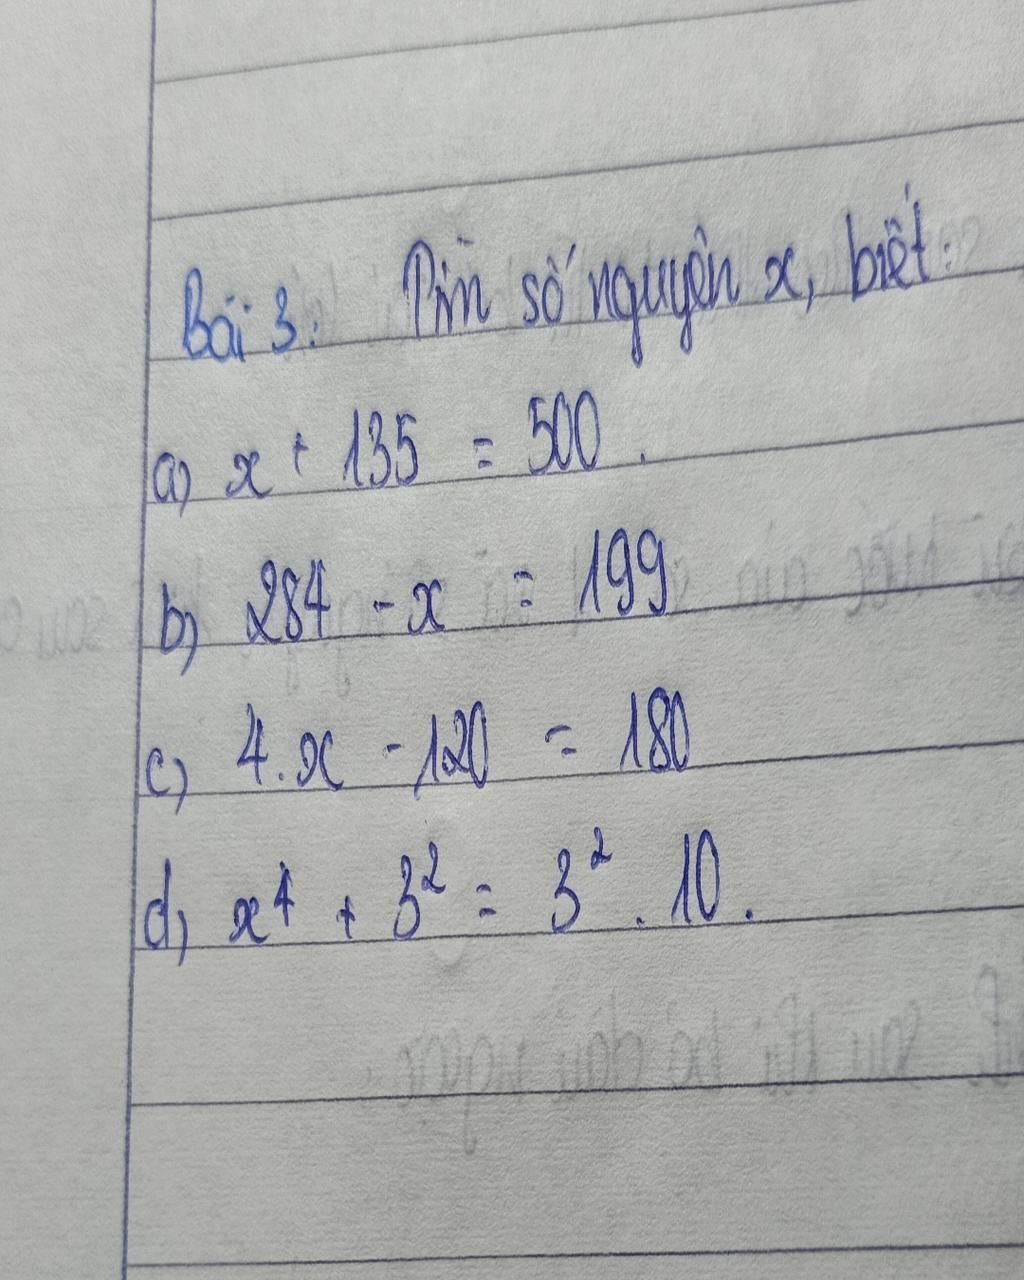 Bài 3: Tìm số nguyên x, biết:
a) x + 135 = 500.
b) 284 - x = 199
c) 4.x - 120 = 180
d) x⁴ + 3² = 3² . 10.